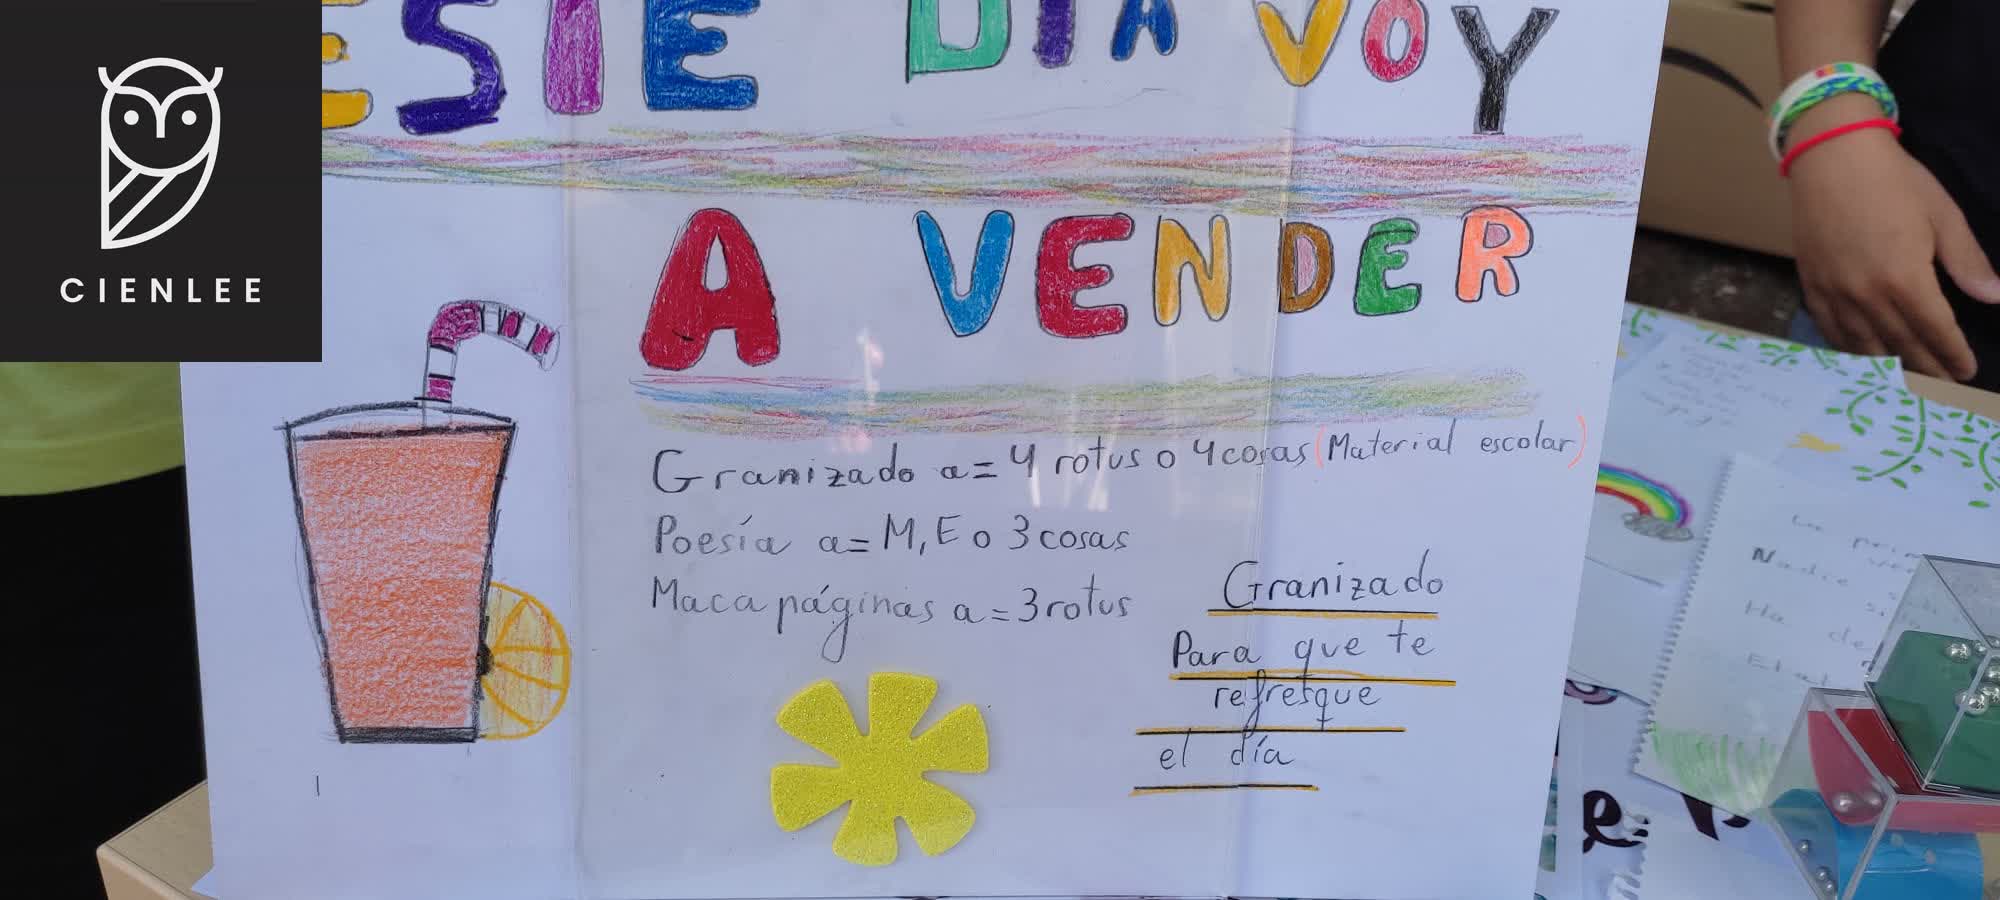 CIENLEE
ESTE DIA VOY
A VENDER
Granizado a= 4 rotus o 4 cosas (Material escolar)
Poesía a= M, E o 3 cosas
Macapáginas a= 3 rotus
Granizado
Para que te
refresque
el día